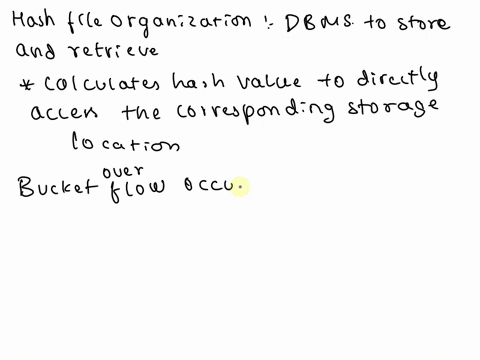 Hash file organization :- DBMS to store
and retrieve
* calculates hash value to directly
access the corresponding storage
location
Bucket over flow occu